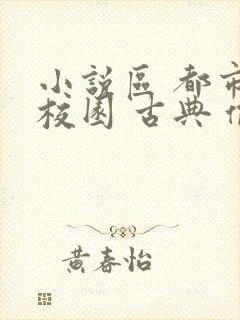 小說區 都市
校園 古典
黃春怡